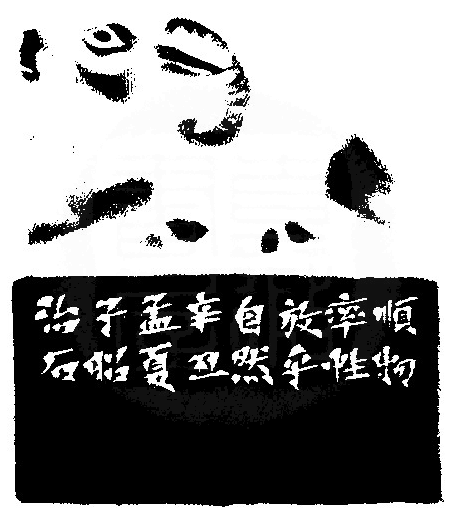 順物
率性
放乎
自然
辛丑
孟夏
子
治石